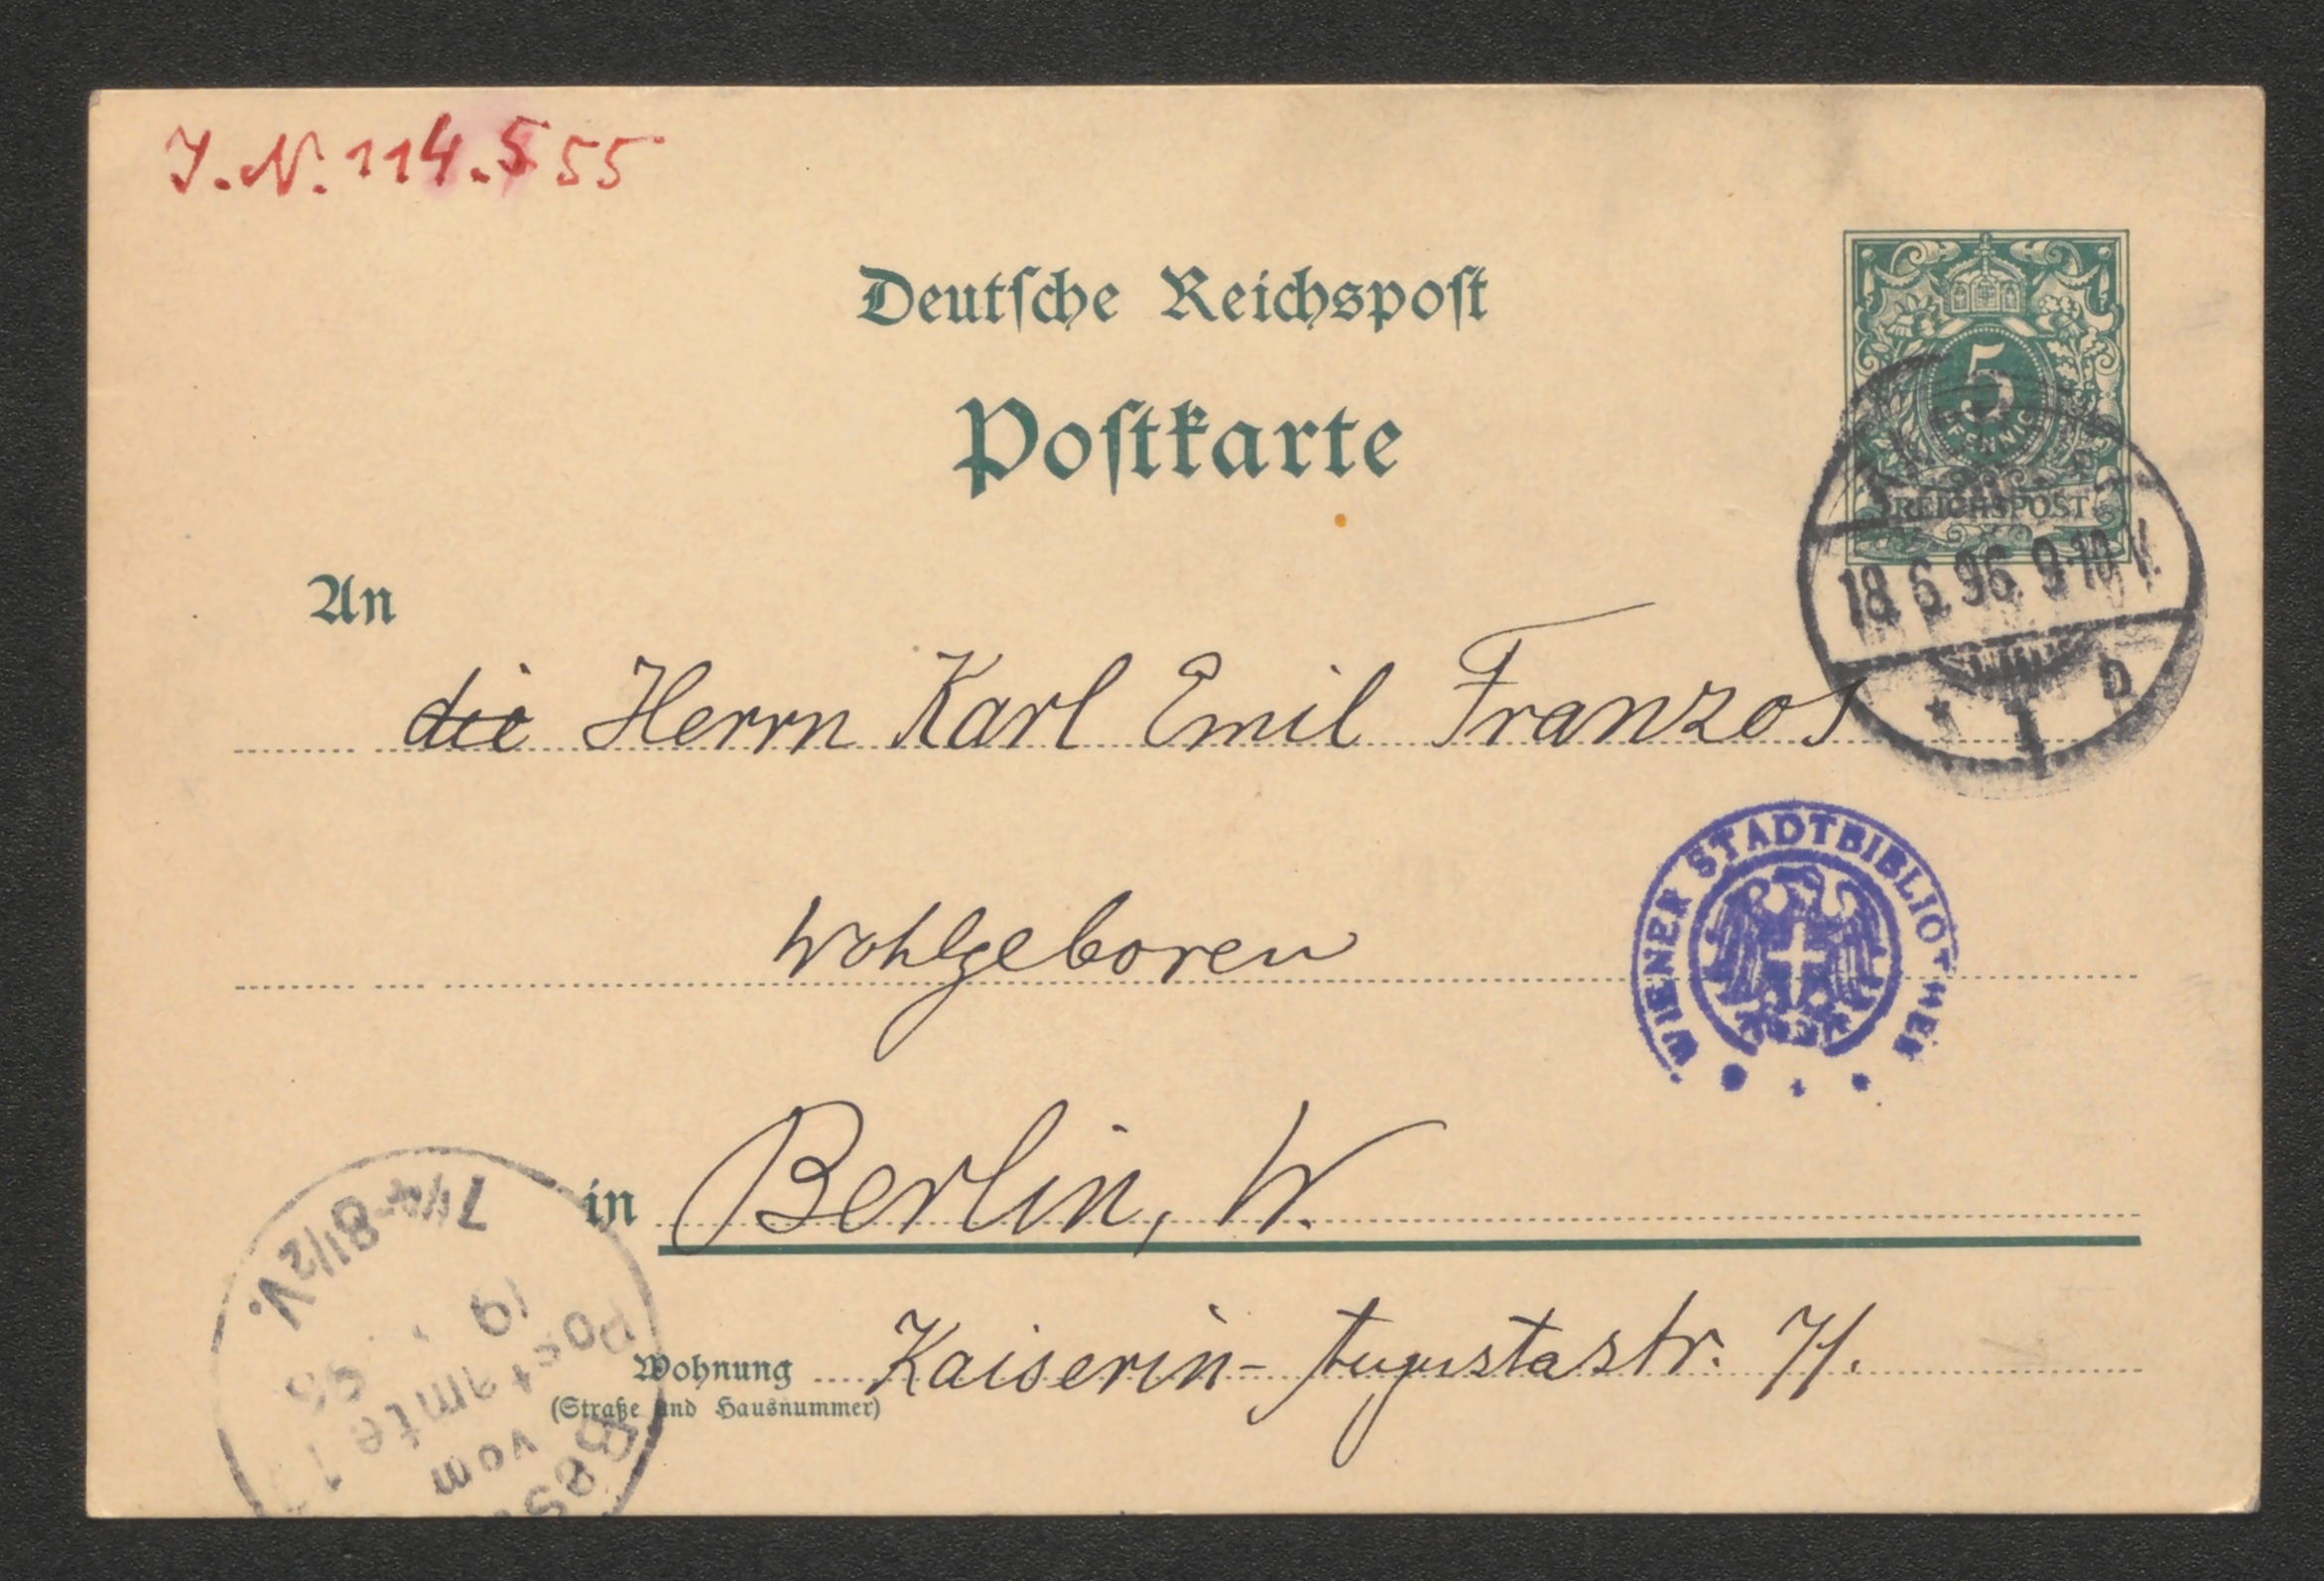 J.N. 114.555
Deutsche Reichspost
Postkarte
5
PFENNIG
REICHSPOST
18.6.96. 9-10 V.
b
An
die Herrn Karl Emil Franzos
Wohlgeboren
WIENER STADTBIBLIOTHEK
in Berlin, W.
Wohnung Kaiserin-Augustastr. 71.
(Straße und Hausnummer)
Best
vom
Postamte
19
7¼-8½V.